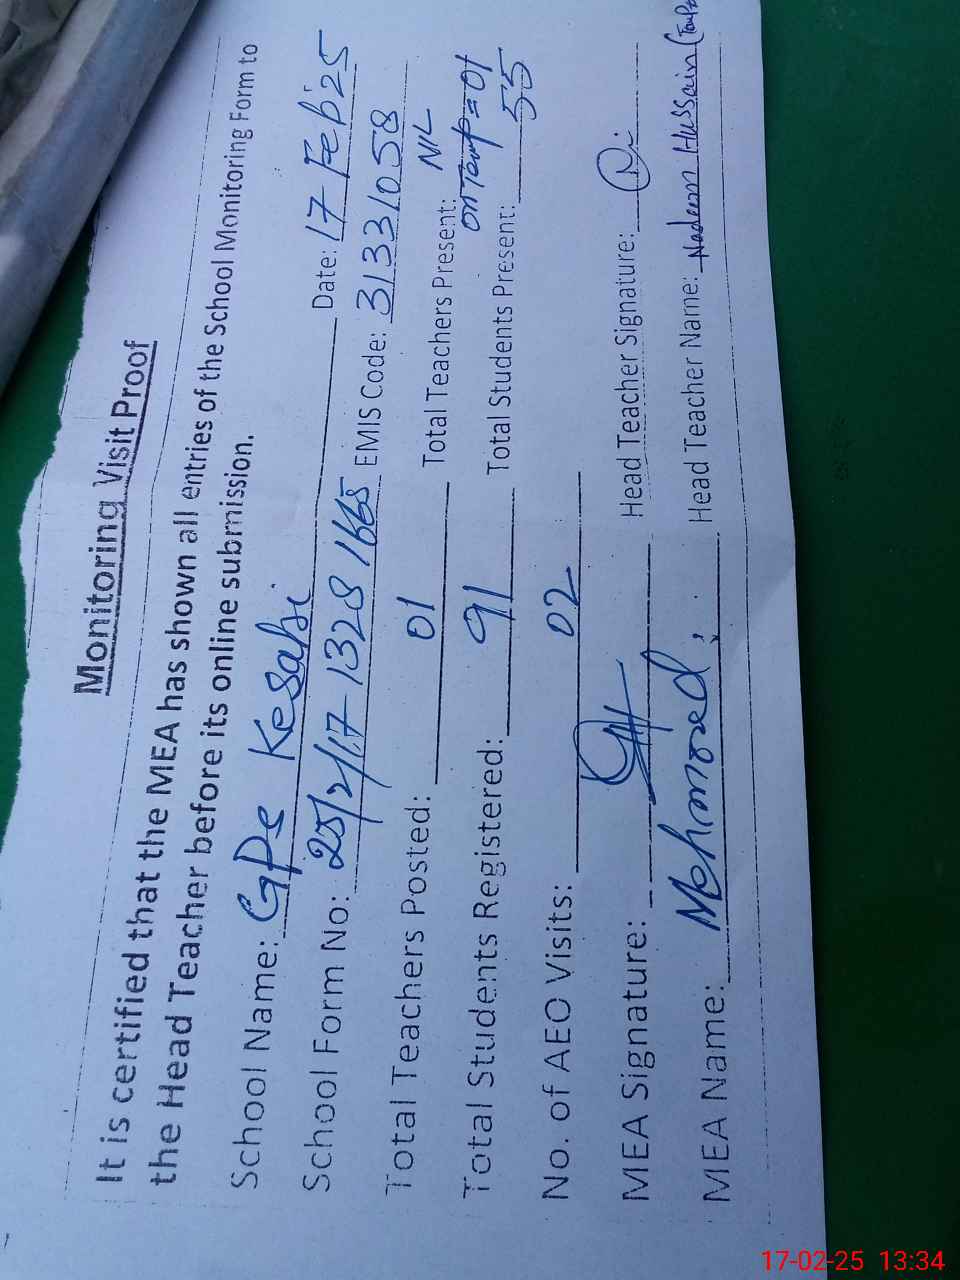 Monitoring Visit Proof
It is certified that the MEA has shown all entries of the School Monitoring Form to
the Head Teacher before its online submission.
School Name: GPS Kesahi Date: 17 Feb 25
School Form No: 25/2/17-1328 1665 EMIS Code: 31331058
Total Teachers Posted: 01 Total Teachers Present: NIL
on Temp = 01
Total Students Registered: 91 Total Students Present: 55
No. of AEO Visits: 02
MEA Signature: Head Teacher Signature:
MEA Name: Mehmood Head Teacher Name: Nadeem Hussain
17-02-25 13:34